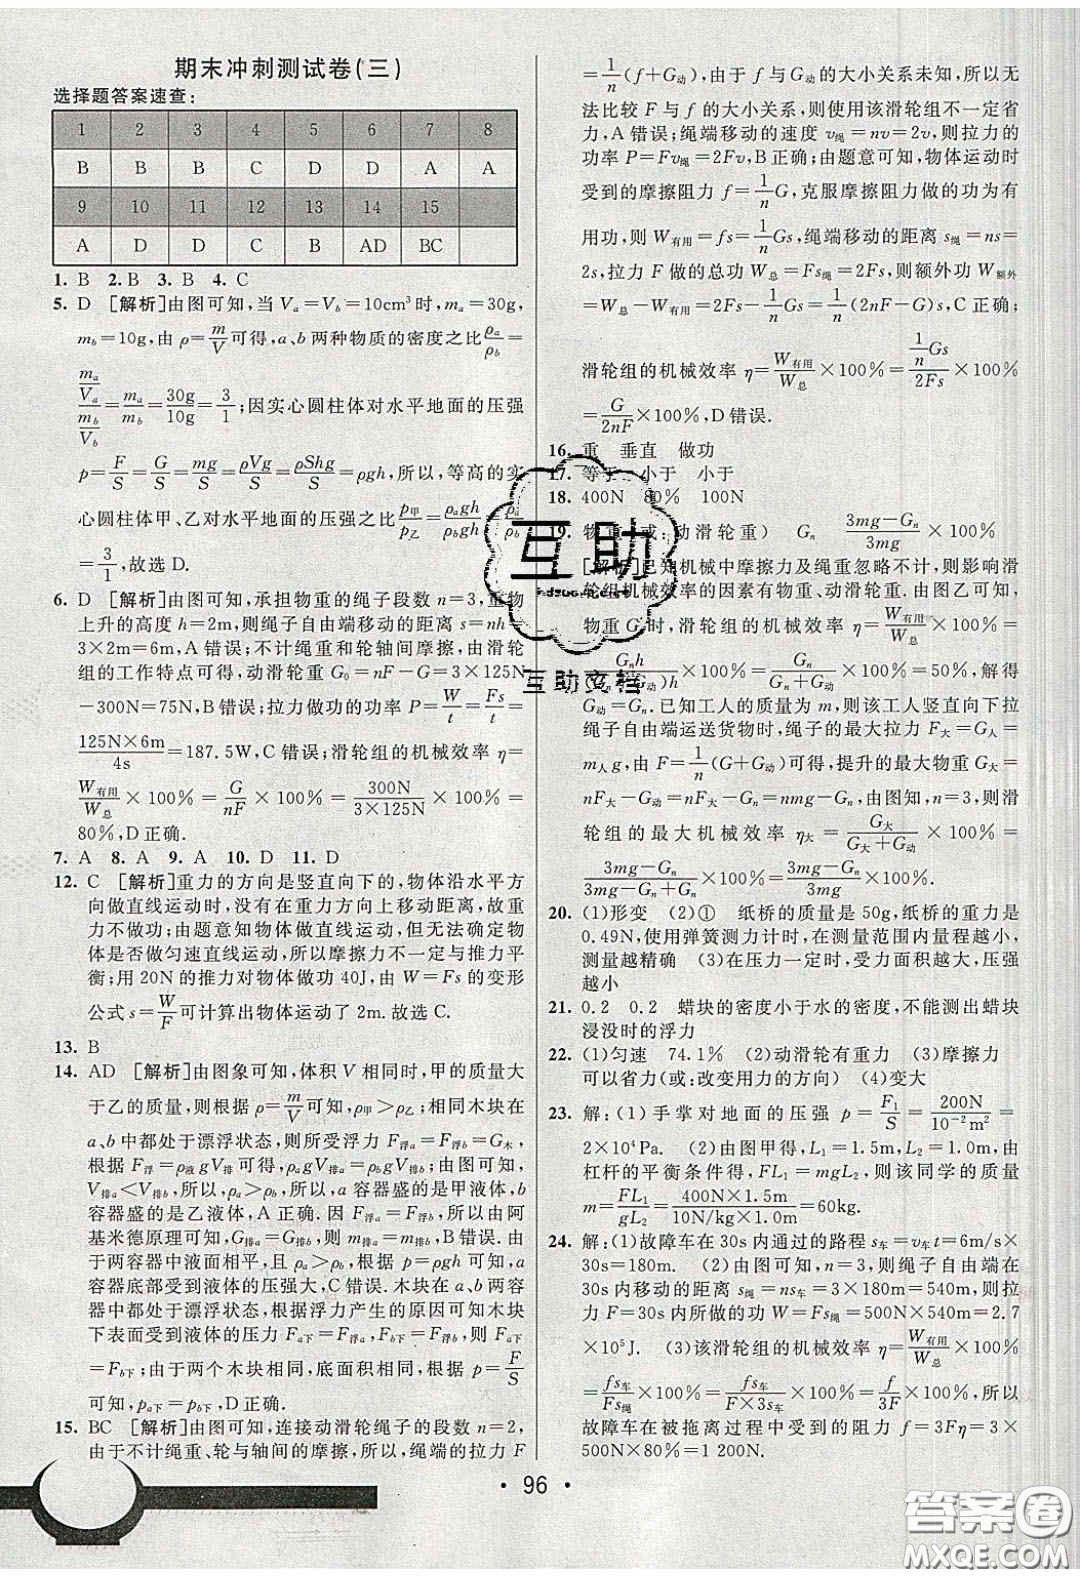 期末冲刺测试卷(三)
选择题答案速查:
1 2 3 4 5 6 7 8
B B B C D D A A
9 10 11 12 13 14 15
A D D C B AD BC
1. B 2. B 3. B 4. C
5. D [解析]由图可知,当 Vₐ=V_b=10cm³时,mₐ=30g,
m_b=10g,由 ρ=m/V可得,a、b两种物质的密度之比ρₐ/ρ_b
=(mₐ/Vₐ)/(m_b/V_b)=mₐ/m_b=30g/10g=3/1;因实心圆柱体对水平地面的压强
p=F/S=G/S=mg/S=ρVg/S=ρShg/S=ρgh,所以,等高的实
心圆柱体甲、乙对水平地面的压强之比p甲/p乙=ρₐgh/ρ_bgh=ρₐ/ρ_b
=3/1,故选 D.
6. D [解析]由图可知,承担物重的绳子段数 n=3,重物
上升的高度 h=2m,则绳子自由端移动的距离 s=nh=
3×2m=6m,A错误;不计绳重和轮轴间摩擦,由滑轮
组的工作特点可得,动滑轮重 G₀=nF-G=3×125N
-300N=75N,B错误;拉力做功的功率 P=W/t=Fs/t=
125N×6m/4s=187.5W,C错误;滑轮组的机械效率 η=
W有用/W总×100%=G/nF×100%=300N/(3×125N)×100%=
80%,D正确.
7. A 8. A 9. A 10. D 11. D
12. C [解析]重力的方向是竖直向下的,物体沿水平方
向做直线运动时,没有在重力方向上移动距离,故重
力不做功;由题意知物体做直线运动,但无法确定物
体是否做匀速直线运动,所以摩擦力不一定与推力平
衡;用 20N的推力对物体做功 40J,由 W=Fs的变形
公式 s=W/F可计算出物体运动了 2m.故选 C.
13. B
14. AD [解析]由图象可知,体积 V 相同时,甲的质量大
于乙的质量,则根据 ρ=m/V可知,ρ甲>ρ乙;相同木块在
a、b中都处于漂浮状态,则所受浮力 F浮a=F浮b=G木,
根据 F浮=ρ液gV排可得,ρₐgV排a=ρ_bgV排b,由图可知,
V排a<V排b,所以,ρₐ>ρ_b,所以,a容器盛的是甲液体,b
容器盛的是乙液体,A正确.因 F浮a=F浮b,所以,由阿
基米德原理可知,G排a=G排b,则 m排a=m排b,B错误.由
于两容器中液面相平,且 ρₐ>ρ_b,则根据 p=ρgh 可知,a
容器底部受到液体的压强大,C错误.木块在 a、b两容
器中都处于漂浮状态,根据浮力产生的原因可知木块
下表面受到液体的压力 Fₐ下=F浮a,F_b下=F浮b,则 Fₐ下
=F_b下;由于两个木块相同,底面积相同,根据 p=F/S
可知,pₐ下=p_b下,D正确.
15. BC [解析]由图可知,连接动滑轮绳子的段数 n=2,
由于不计绳重、轮与轴间的摩擦,所以,绳端的拉力 F
=1/n(f+G动),由于 f 与G动的大小关系未知,所以无
法比较 F 与 f 的大小关系,则使用该滑轮组不一定省
力,A错误;绳端移动的速度 v绳=nv=2v,则拉力的
功率 P=Fv绳=2Fv,B正确;由题意可知,物体运动时
受到的摩擦阻力 f=1/nG,克服摩擦阻力做的功为有
用功,则 W有用=fs=1/nGs,绳端移动的距离 s绳=ns=
2s,拉力 F 做的总功 W总=Fs绳=2Fs,则额外功 W额外
=W总-W有用=2Fs-1/nGs=1/n(2nF-G)s,C正确;
滑轮组的机械效率 η=W有用/W总×100%=(1/nGs)/2Fs×100%
=G/2nF×100%,D错误.
16. 重 垂直 做功
17. 等于 小于 小于
18. 400N 80% 100N
19. 物重(或:动滑轮重) Gₙ (3mg-Gₙ)/3mg×100%
[解析]已知机械中摩擦力及绳重忽略不计,则影响滑
轮组机械效率的因素有物重、动滑轮重.由图乙可知,
物重 Gₙ时,滑轮组的机械效率 η=W有用/W总×100%=
Gₙh/(Gₙ+G动)h×100%=Gₙ/(Gₙ+G动)×100%=50%,解得
G动=Gₙ.已知工人的质量为 m,则该工人竖直向下拉
绳子自由端运送货物时,绳子的最大拉力 F大=G人=
m人g,由 F=1/n(G+G动)可得,提升的最大物重 G大=
nF大-G动=nF大-Gₙ=nmg-Gₙ,由图可知,n=3,则滑
轮组的最大机械效率 η大=G大/(G大+G动)×100%=
(3mg-Gₙ)/(3mg-Gₙ+Gₙ)×100%=(3mg-Gₙ)/3mg×100%.
20. (1)形变 (2)① 纸桥的质量是 50g,纸桥的重力是
0.49N,使用弹簧测力计时,在测量范围内量程越小,
测量越精确 (3)在压力一定时,受力面积越大,压强
越小
21. 0.2 0.2 蜡块的密度小于水的密度,不能测出蜡块
浸没时的浮力
22. (1)匀速 74.1% (2)动滑轮有重力 (3)摩擦力
可以省力(或:改变用力的方向) (4)变大
23. 解:(1)手掌对地面的压强 p=F₁/S=200N/10⁻²m²=
2×10⁴Pa. (2)由图甲得,L₁=1.5m,L₂=1m,由
杠杆的平衡条件得,FL₁=mgL₂,则该同学的质量
m=FL₁/gL₂=(400N×1.5m)/(10N/kg×1m)=60kg.
24. 解:(1)故障车在 30s内通过的路程 s车=v车t=6m/s×
30s=180m. (2)由图可知,n=3,则绳子自由端在
30s内移动的距离 s绳=ns车=3×180m=540m,则拉
力 F=30s内所做的功 W=Fs绳=500N×540m=2.7
×10⁵J. (3)该滑轮组的机械效率 η=W有用/W总×100%
=fs车/Fs绳×100%=fs车/(F×3s车)×100%=f/3F×100%,所以
故障车在被拖离过程中受到的阻力 f=3Fη=3×
500N×80%=1 200N.
• 96 •
互助
互助文档
答案圈
MXQE.COM